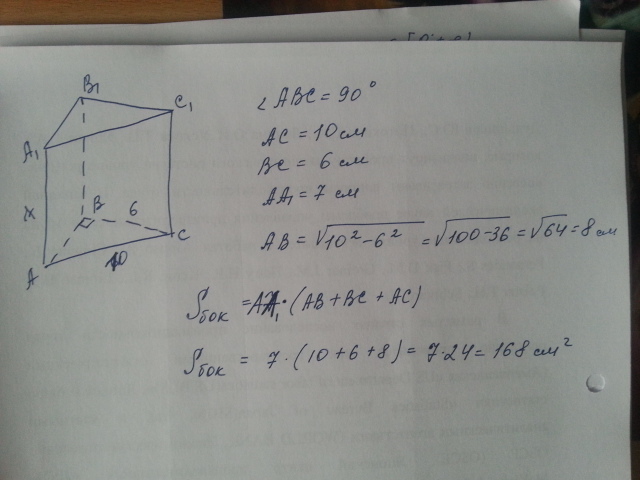 B₁
C₁
A₁
x
B
6
C
10
A
∠ ABC = 90°
AC = 10 см
BC = 6 см
AA₁ = 7 см
AB = √10² - 6² = √100-36 = √64 = 8 см
Sбок = AA₁ · (AB + BC + AC)
Sбок = 7 · (10 + 6 + 8) = 7 · 24 = 168 см²